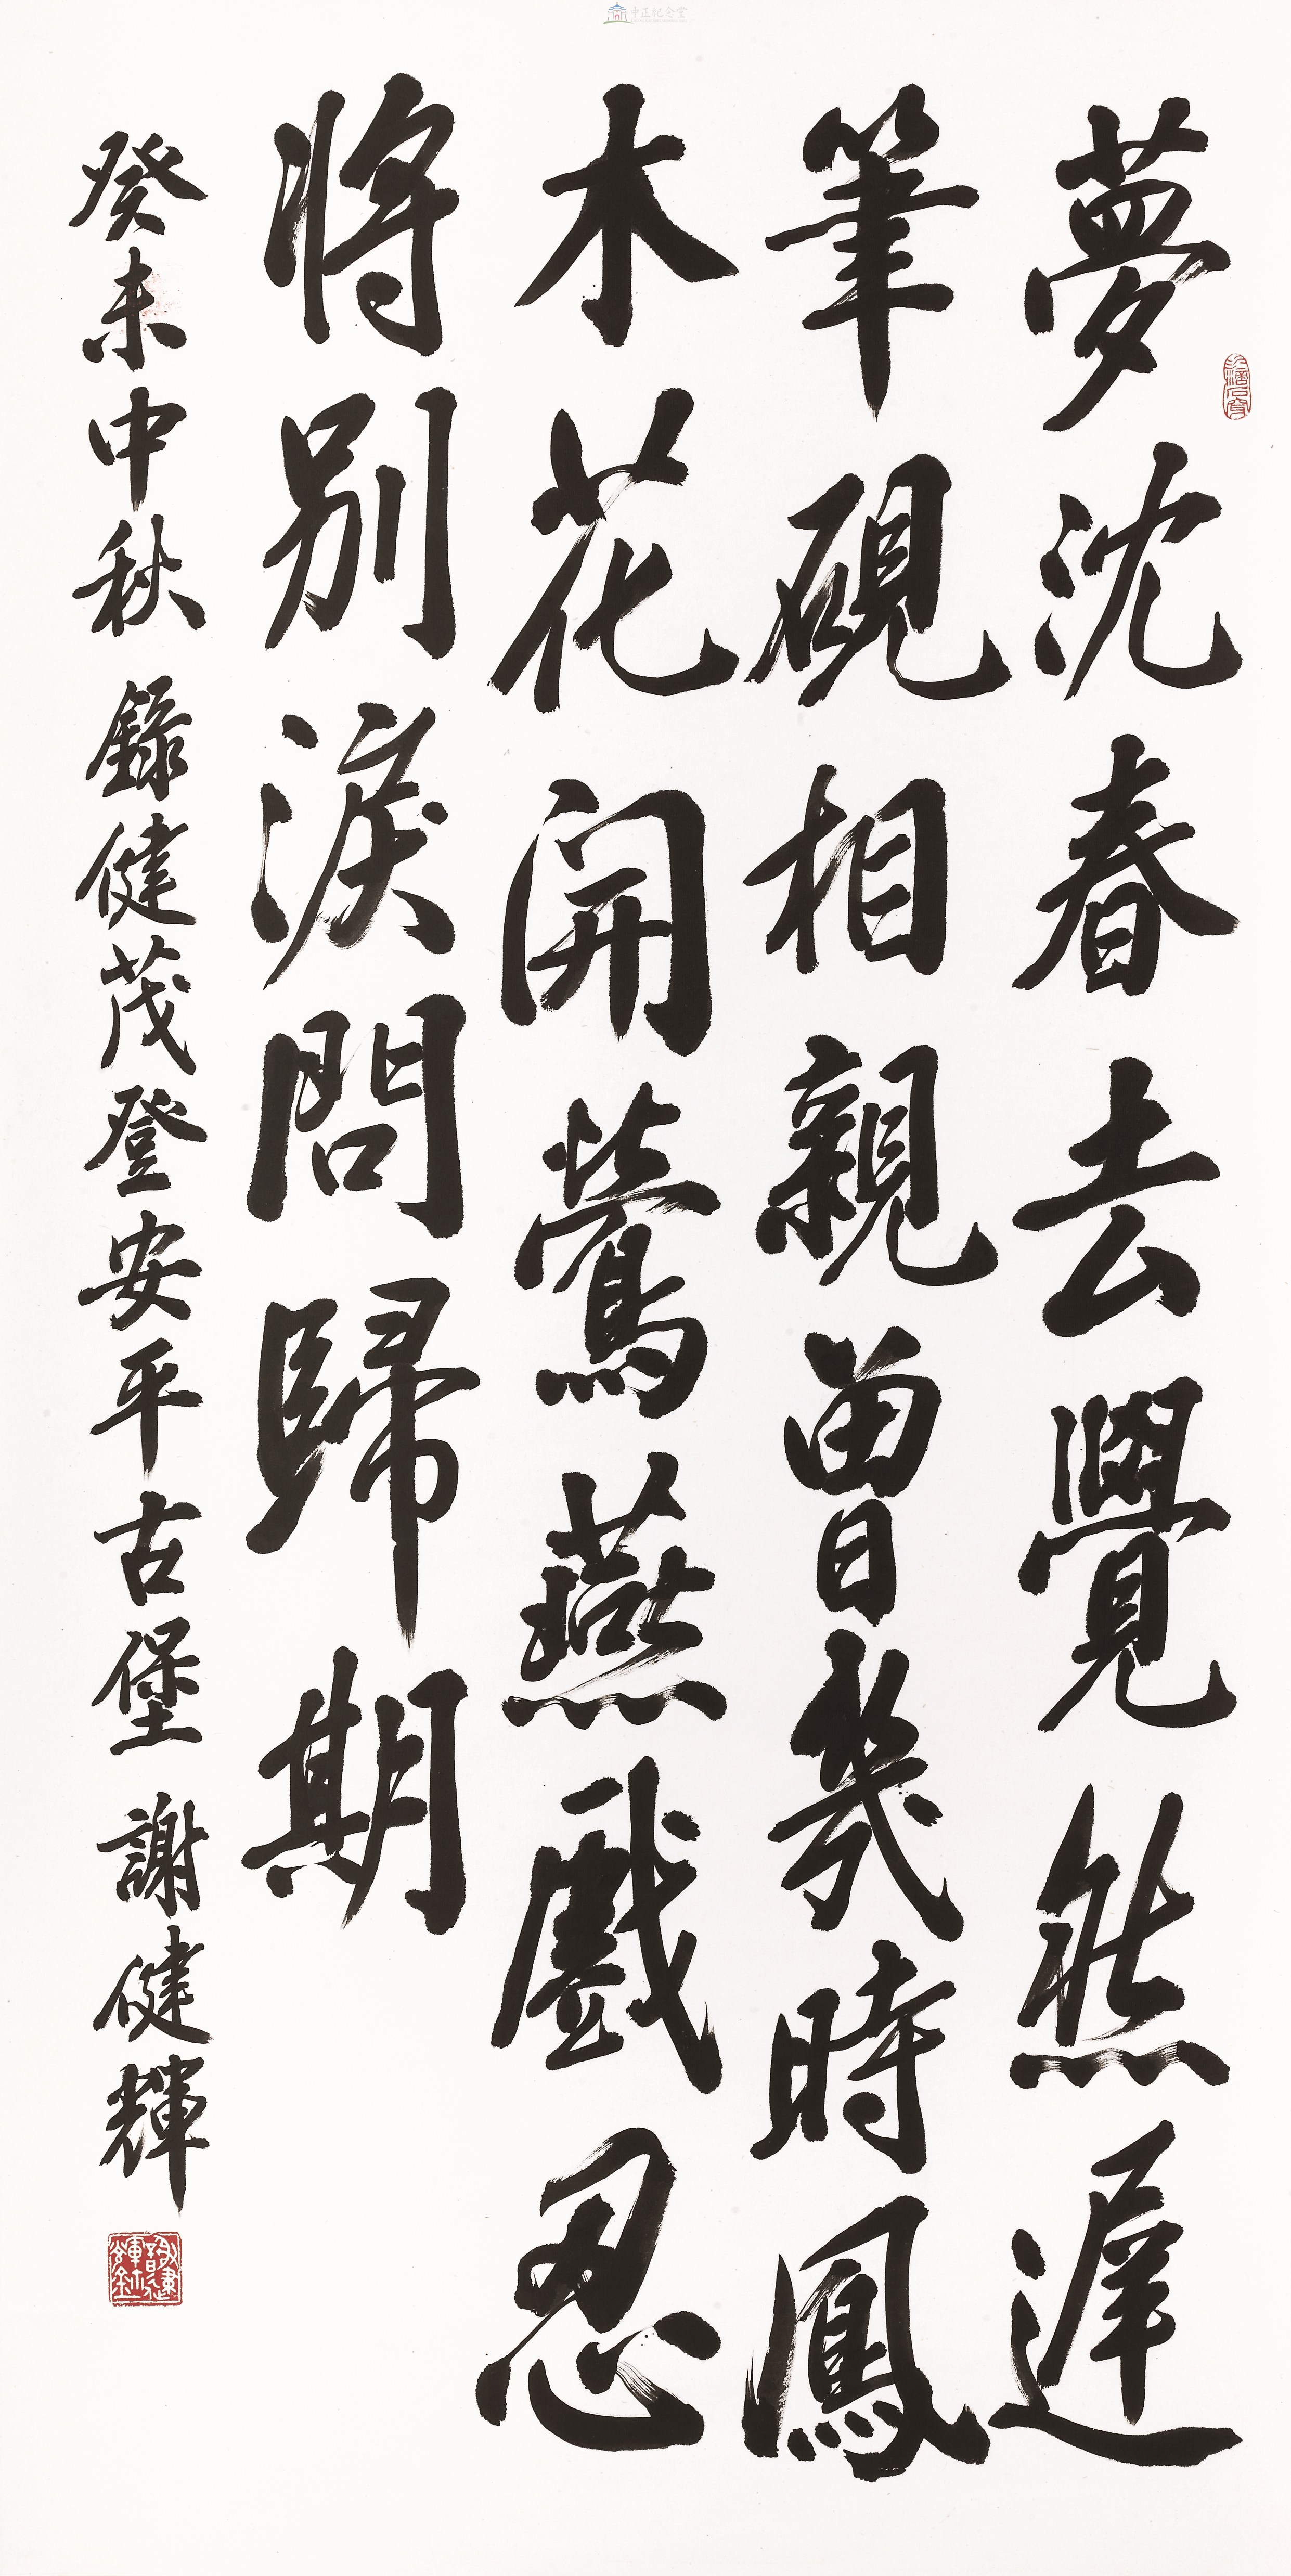 夢沈春去覺然遲
筆硯相親曾幾時鳳
木花開鶯燕戲忍
將別淚問歸期
癸未中秋 錄健茂登安平古堡 謝健輝
中正紀念堂